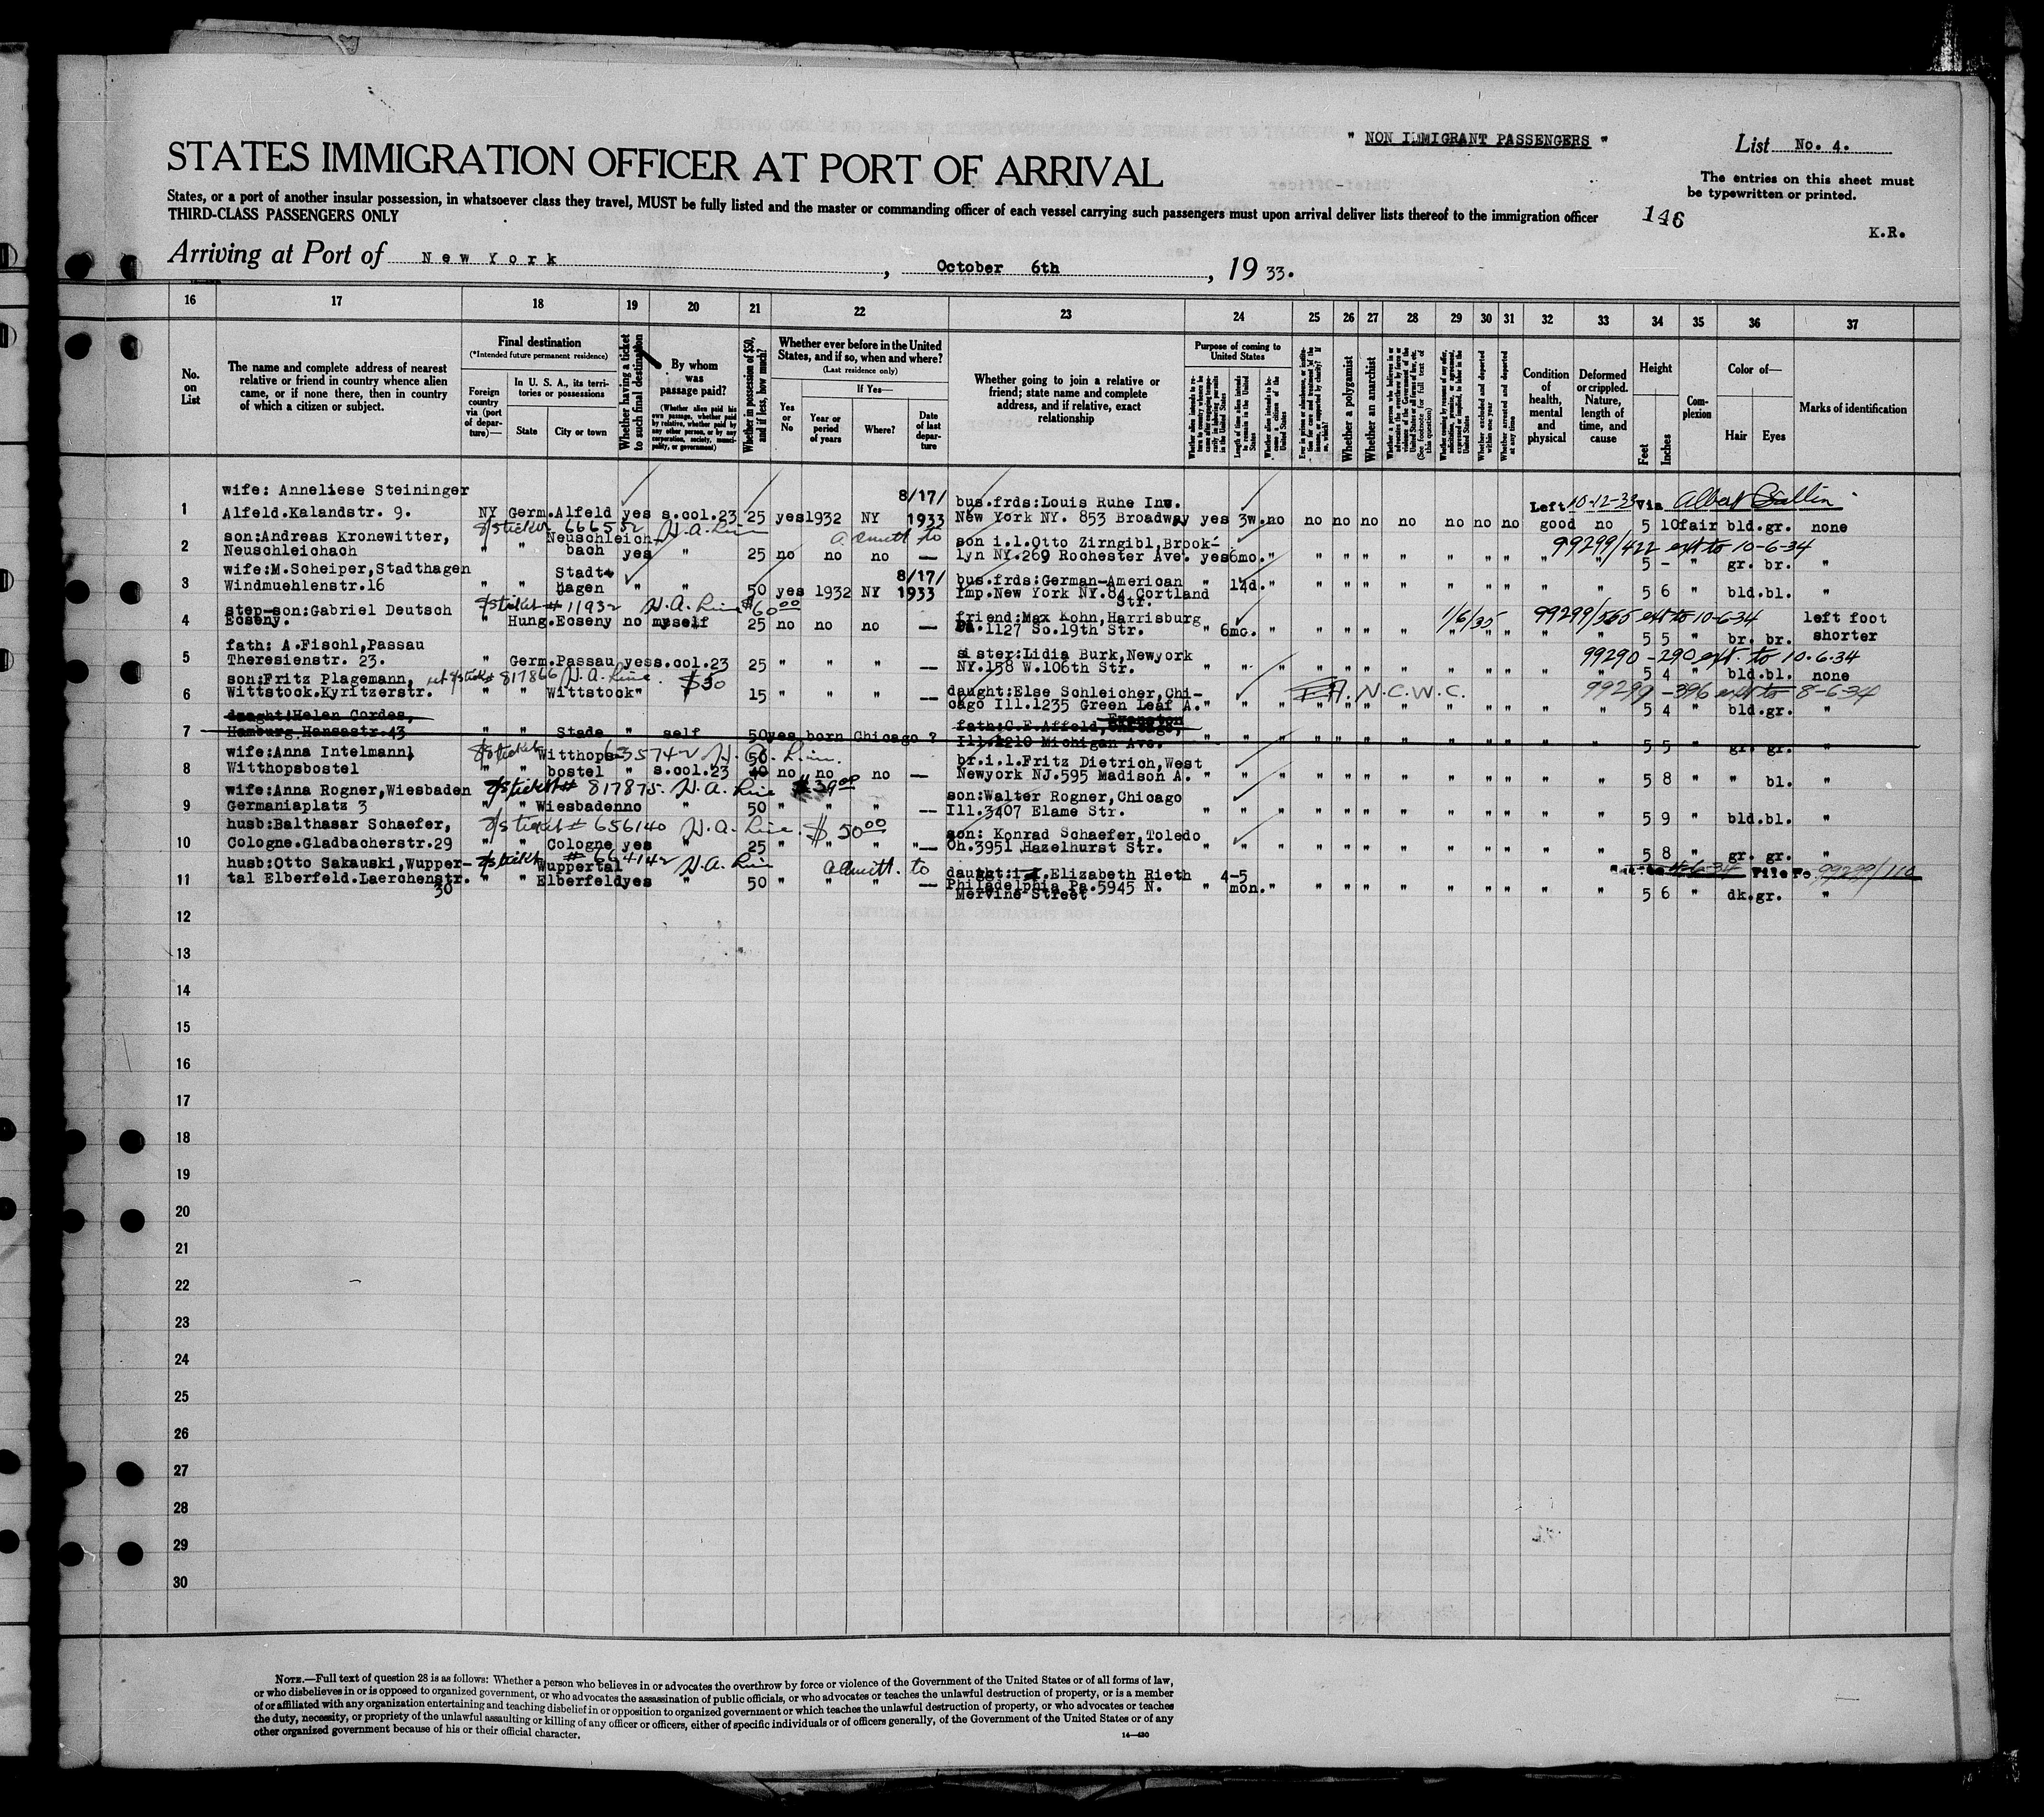 " NON IMMIGRANT PASSENGERS "
List No. 4.
STATES IMMIGRATION OFFICER AT PORT OF ARRIVAL
The entries on this sheet must
be typewritten or printed.
States, or a port of another insular possession, in whatsoever class they travel, MUST be fully listed and the master or commanding officer of each vessel carrying such passengers must upon arrival deliver lists thereof to the immigration officer
THIRD-CLASS PASSENGERS ONLY
146
K.R.
Arriving at Port of New York, October 6th, 19 33.
16 17 18 19 20 21 22 23 24 25 26 27 28 29 30 31 32 33 34 35 36 37
No. on List
The name and complete address of nearest relative or friend in country whence alien came, or if none there, then in country of which a citizen or subject.
Final destination
(*Intended future permanent residence)
Foreign country via (port of departure)—
In U. S. A., its territories or possessions
State
City or town
Whether having a ticket to such final destination
By whom was passage paid?
(Whether alien paid his own passage, whether paid by relative, whether paid by any other person, or by any corporation, society, municipality, or government)
Whether in possession of $50, and if less, how much?
Whether ever before in the United States, and if so, when and where?
(Last residence only)
Yes or No
If Yes—
Year or period of years
Where?
Date of last departure
Whether going to join a relative or friend; state name and complete address, and if relative, exact relationship
Purpose of coming to United States
Length of time alien intends to remain in the United States
Whether alien intends to become a citizen of the United States
Whether a polygamist
Whether an anarchist
(See footnote for full text of this question)
Whether excluded and deported within one year
Whether arrested and deported at any time
Condition of health, mental and physical
Deformed or crippled. Nature, length of time, and cause
Height
Feet
Inches
Complexion
Color of—
Hair
Eyes
Marks of identification
wife: Anneliese Steininger 8/17/ bus.frds:Louis Ruhe Left 10-12-33 Via Albert Ballin
1 Alfeld.Kalandstr. 9. NY Germ.Alfeld yes s.col.23 25 yes 1932 NY 1933 New York NY. 853 Broadway yes 3w. no no no no no no no no good no 5 10 fair bld.gr. none
666552 H.A. Line admitt to
son:Andreas Kronewitter, Neuschleich- son i.l.Otto Zirngibl,Brook- 99299/422 ext to 10-6-34
2 Neuschleichach " " bach yes " 25 no no no — lyn NY.269 Rochester Ave. yes 6mo. " " " " " " " " " " 5 - " gr. br. "
wife:M.Scheiper,Stadthagen Stadt- 8/17/ bus.frds:German-American
3 Windmuehlenstr.16 " " hagen " " 50 yes 1932 NY 1933 Imp.New York NY.84 Cortland " 14d. " " " " " " " " " " 5 6 " bld.bl. "
Str.
# 11932 H.A. Line $60 00
step-son:Gabriel Deutsch friend:Max Kohn,Harrisburg 1/6/35 99299/565 ext to 10-6-34 left foot
4 Eoseny. " Hung.Eoseny no myself 25 no no no — Pa.1127 So.19th Str. " 6mo. " " " " " " " " " " 5 5 " br. br. shorter
fath: A.Fischl,Passau sister:Lidia Burk,Newyork 99290-290 ext. to 10-6-34
5 Theresienstr. 23. " Germ.Passau yes s.col.23 25 " " " — NY.158 W.106th Str. " " " " " " " " " " " " 5 4 " bld.bl. none
817866 H.A. Line. $50
son:Fritz Plagemann, daught:Else Schleicher,Chi- N.C.W.C. 99299-396 ext to 8-6-34
6 Wittstock.Kyritzerstr. " " Wittstock " 15 " " " — cago Ill.1235 Green Leaf A. " " " " " " " " " " " " 5 4 " bld.gr. "
daught:Helen Cordes, fath:C.E.Affeld, Evanston
7 Hamburg.Hansastr.43 " " Stade " self 50 yes born Chicago ? Ill.1210 Michigan Ave. " " " " " " " " " " " " 5 5 " gr. gr. "
635742 H.A. Line.
wife:Anna Intelmann, Witthops- 50 br.i.l.Fritz Dietrich,West
8 Witthopsbostel " " bostel " s.col.23 40 no no no — Newyork NJ.595 Madison A. " " " " " " " " " " " " 5 8 " " bl. "
# 817875. H.A. Line $39 00
wife:Anna Rogner,Wiesbaden son:Walter Rogner,Chicago
9 Germaniaplatz 3 " " Wiesbaden no " 50 " " " — Ill.3407 Elame Str. " " " " " " " " " " " " 5 9 " bld.bl. "
ticket # 656140 H.A. Line. $50 00
husb:Balthasar Schaefer, son: Konrad Schaefer,Toledo
10 Cologne.Gladbacherstr.29 " " Cologne yes " 25 " " " "— Oh.3951 Hazelhurst Str. " " " " " " " " " " " " 5 8 " gr. gr. "
# 664142 H.A. Line admitt. to
husb:Otto Sakauski,Wupper- Wuppertal daught: Elizabeth Rieth 4-5 File No. 99299/110
11 tal Elberfeld.Laerchenstr. " " Elberfeld yes " 50 " " " — Philadelphia Pa.5945 N. " mon. " " " " " " " " " " 5 6 " dk.gr. "
30 Mervine Street
12
13
14
15
16
17
18
19
20
21
22
23
24
25
26
27
28
29
30
NOTE.—Full text of question 28 is as follows: Whether a person who believes in or advocates the overthrow by force or violence of the Government of the United States or of all forms of law,
or who disbelieves in or is opposed to organized government, or who advocates the assassination of public officials, or who advocates or teaches the unlawful destruction of property, or is a member
of or affiliated with any organization entertaining and teaching disbelief in or opposition to organized government or which teaches the unlawful destruction of property, or who advocates or teaches
the duty, necessity, or propriety of the unlawful assaulting or killing of any officer or officers, either of specific individuals or of officers generally, of the Government of the United States or of any
other organized government because of his or their official character.
14—430